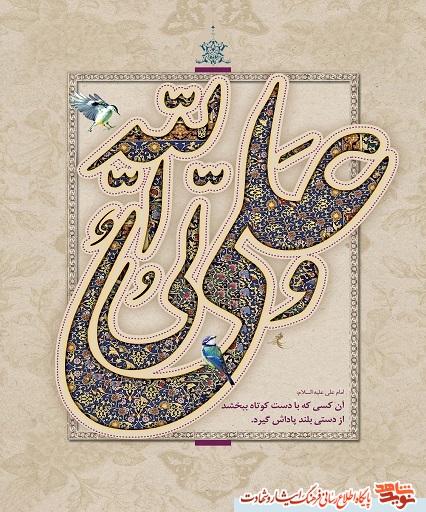 علی ولی الله
امام علی علیه السلام:
آن کسی که با دست کوتاه ببخشد
از دستی بلند پاداش گیرد.
نوید شاهد
پایگاه اطلاع رسانی فرهنگ ایثار و شهادت